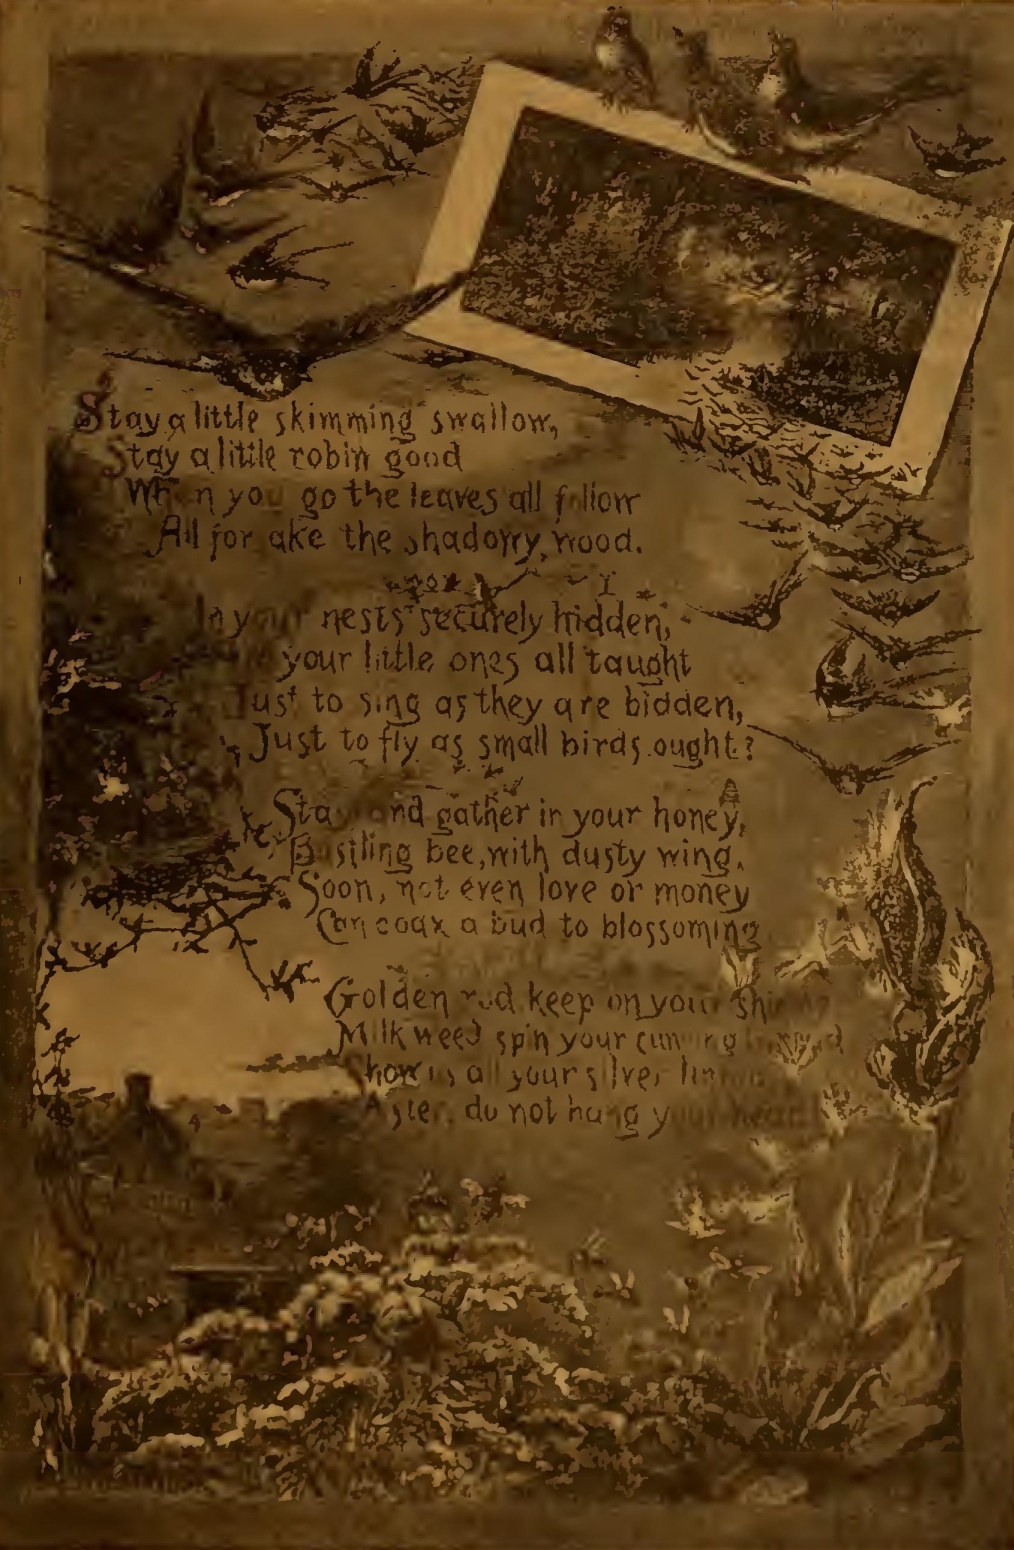 Stay a little skimming swallow,
Stay a little robin good
When you go the leaves all follow
All forsake the shadowy wood.
In your nests securely hidden,
your little ones all taught
Just to sing as they are bidden,
Just to fly as small birds ought?
Stay and gather in your honey,
Bustling bee, with dusty wing,
Soon, not even love or money
Can coax a bud to blossoming
Golden rod keep on your
Milk weed spin your cunning
Show us all your silver
Aster, do not hang your head